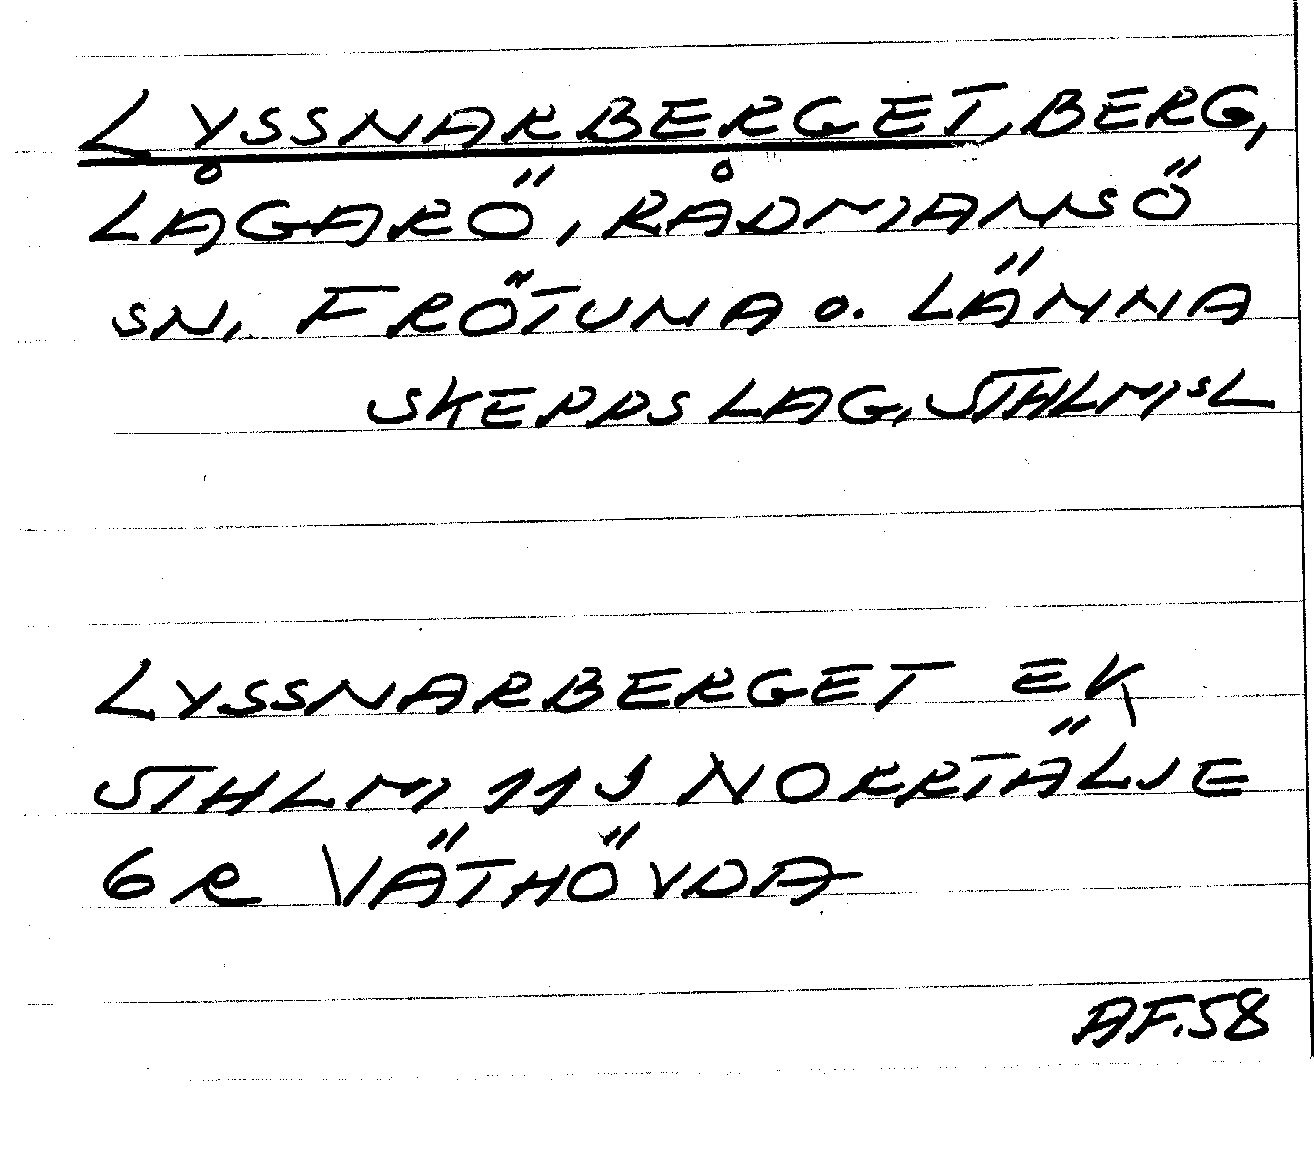 LYSSNARBERGET, BERG,
LÅGARÖ, RÅDMANSÖ
SN, FRÖTUNA o. LÄNNA
SKEPPSLAG, STHLMSL
LYSSNARBERGET EK
STHLM 11J NORRTÄLJE
6R VÄTHÖVDA
AF.58